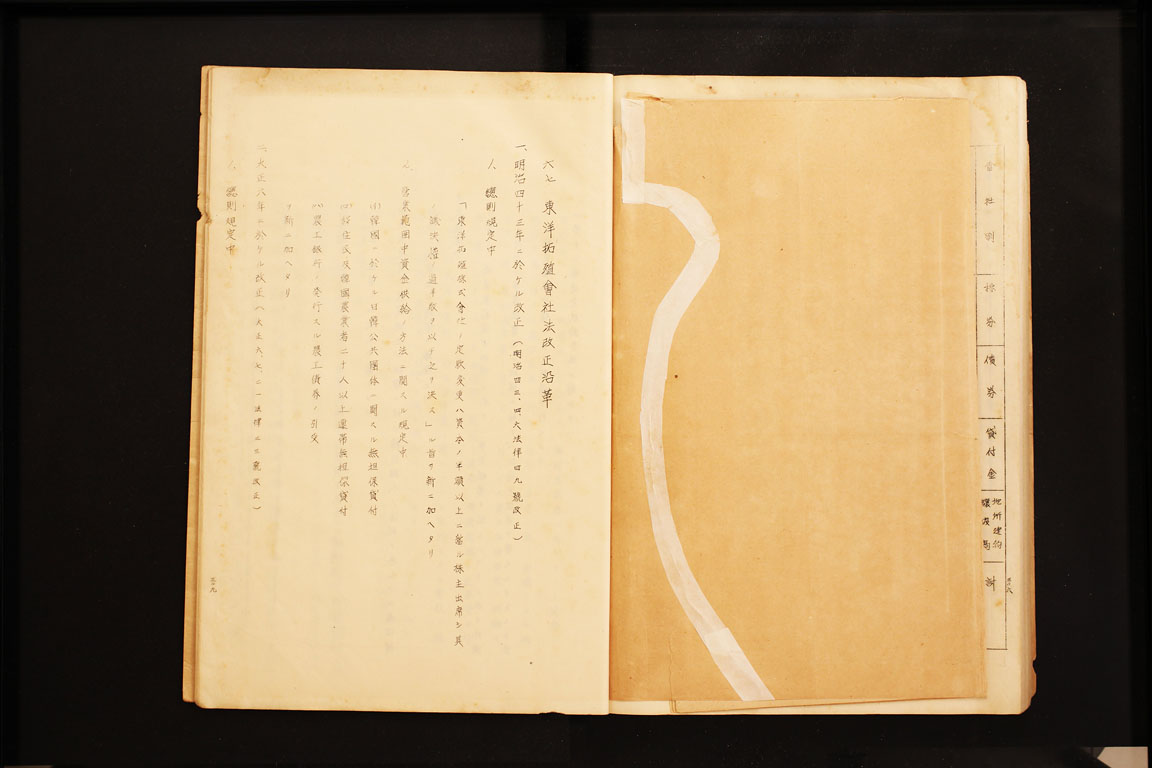 會社別
株券
債券
貸付金
地所建物
計
六七 東洋拓殖會社法改正沿革
一、明治四十三年ニ於ケル改正(明治四三、四、六法律四九號改正)
1、總則規定中
「東洋拓殖株式會社ノ定款變更ハ資本ノ半額以上ニ當ル株主出席シ其
ノ議決權ノ過半數ヲ以テ之ヲ決ス」ル旨ヲ新ニ加ヘタリ
2、營業範圍中資金供給ノ方法ニ關スル規定中
(イ)韓國ニ於ケル日韓公共團体ニ對スル無担保貸付
(ロ)移住民及韓國農業者二十人以上連帶無担保貸付
(ハ)農工銀行ノ発行スル農工債券ノ引受
ヲ新ニ加ヘタリ
二、大正六年ニ於ケル改正(大正六、七、二一法律二三號改正)
1、總則規定中